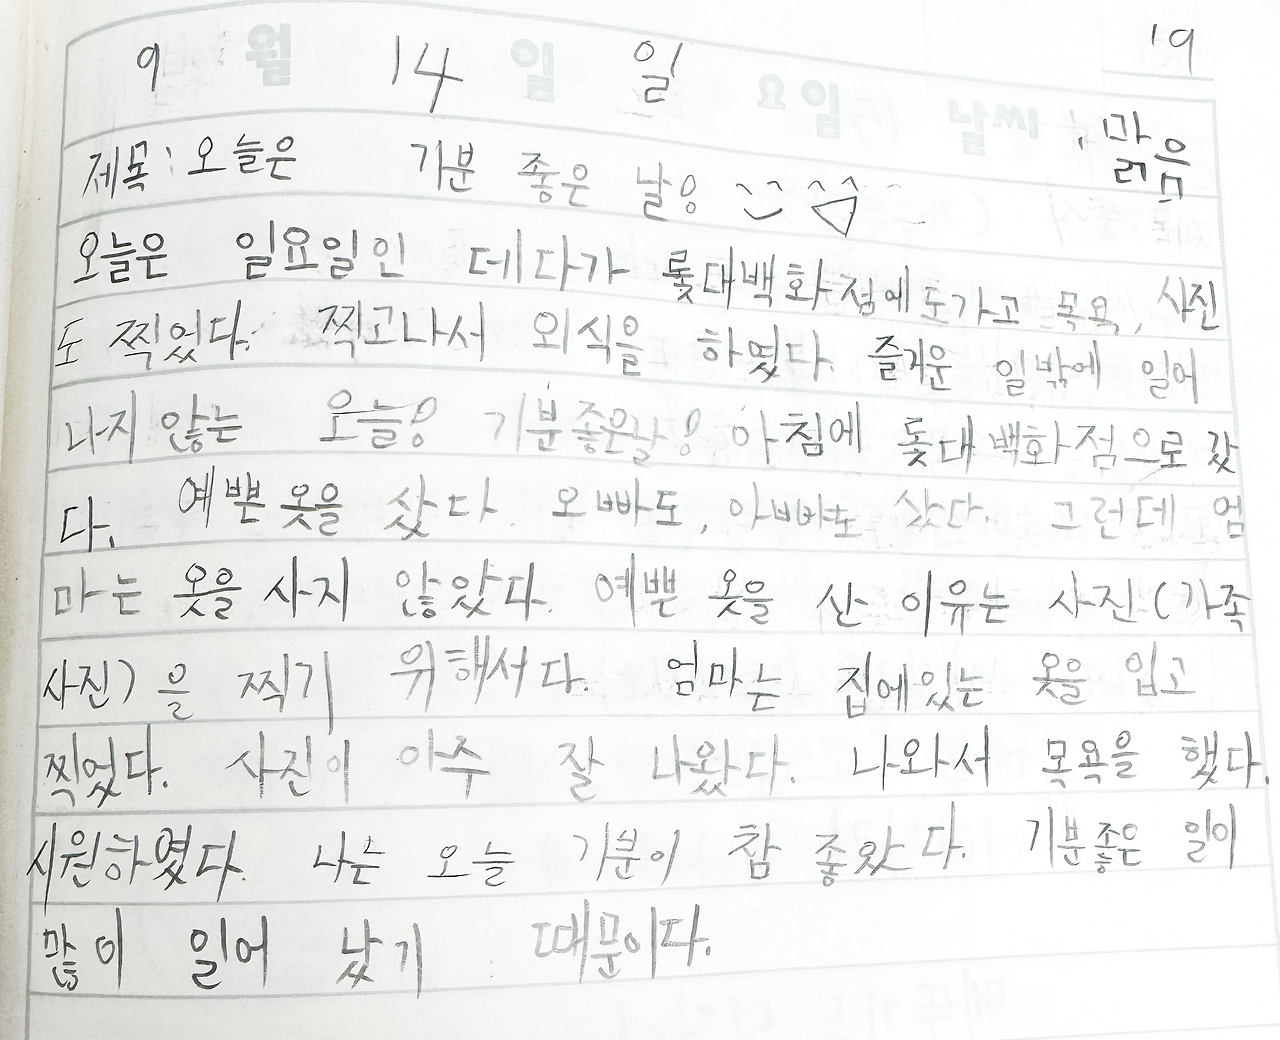 19
9 월 14 일 일 요일 날씨 : 맑음
제목 : 오늘은 기분 좋은 날!
오늘은 일요일인 데다가 롯대백화점에도가고 목욕, 사진
도 찍었다. 찍고나서 외식을 하였다. 즐거운 일밖에 일어
나지 않는 오늘! 기분좋은날! 아침에 롯대백화점으로 갔
다. 예쁜 옷을 샀다. 오빠도, 아빠도 샀다. 그런데 엄
마는 옷을 사지 않았다. 예쁜 옷을 산 이유는 사진(가족
사진)을 찍기 위해서다. 엄마는 집에있는 옷을 입고
찍었다. 사진이 아주 잘 나왔다. 나와서 목욕을 했다.
시원하였다. 나는 오늘 기분이 참 좋았다. 기분좋은 일이
많이 일어 났기 때문이다.